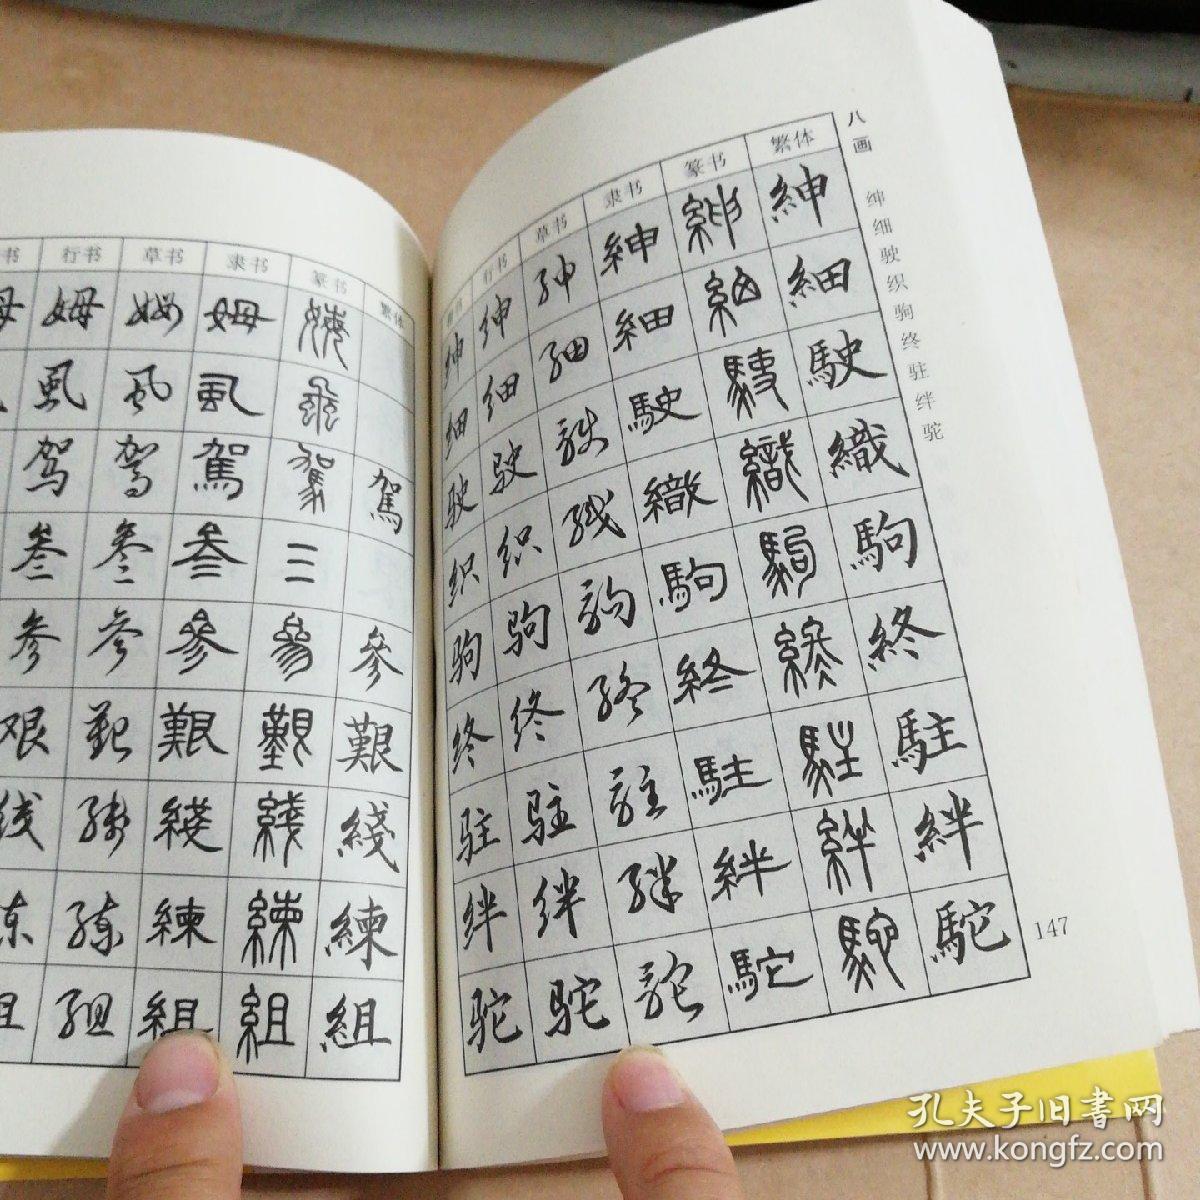 书 行书 草书 隶书 篆书 繁体
母 姆 姆 姆 姆
虱 虱 虱 虱
驾 驾 駕 駕 駕
叁 叁 叁 三
参 参 參 參 參
艰 艰 艱 艱 艱
线 线 綫 綫 綫
练 练 練 練 練
组 组 組 組 組
楷书 行书 草书 隶书 篆书 繁体
绅 绅 绅 紳 紳 紳
细 细 细 細 細 細
驶 驶 驶 駛 駛 駛
织 织 织 織 織 織
驹 驹 驹 駒 駒 駒
终 终 终 終 終 終
驻 驻 驻 駐 駐 駐
绊 绊 绊 絆 絆 絆
驼 驼 驼 駝 駝 駝
八画 绅细驶织驹终驻绊驼
147
孔夫子旧书网
www.kongfz.com